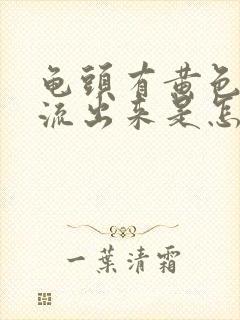 龟頭有黄色
流出来是怎
一葉清霜